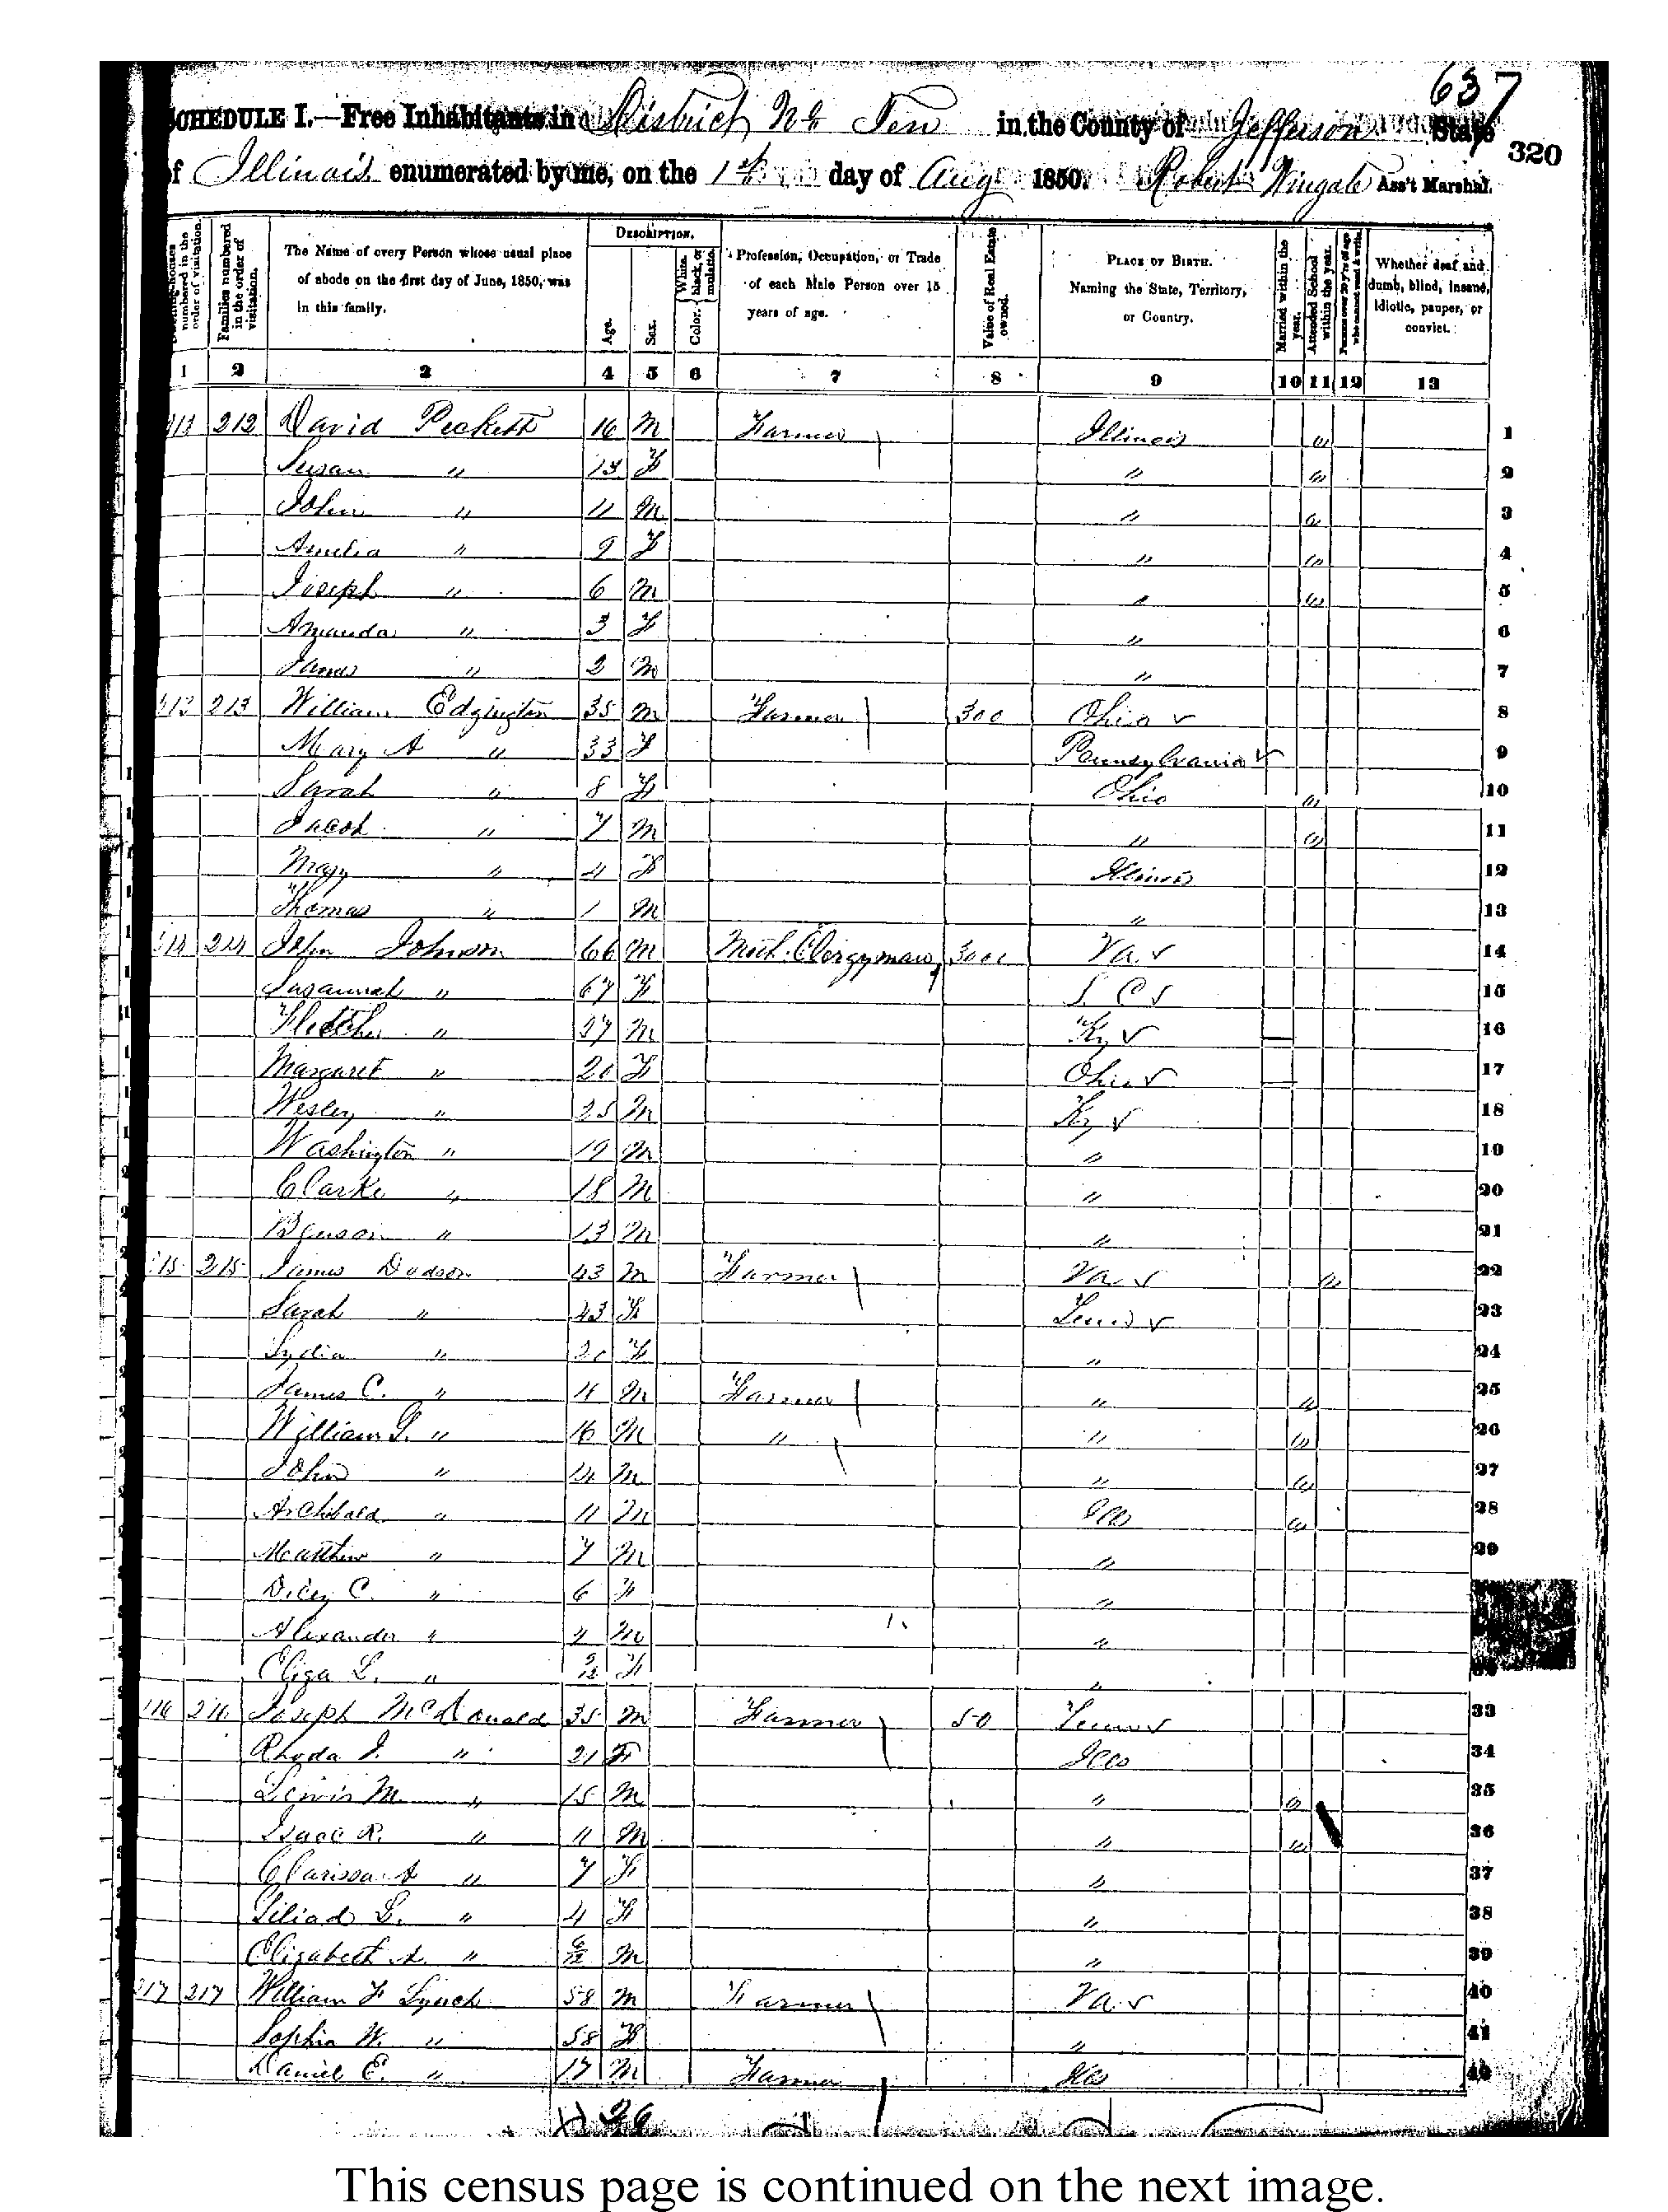 637
SCHEDULE I.—Free Inhabitants in District No Ten in the County of Jefferson State
320
of Illinois enumerated by me, on the 1st day of Aug 1850. Robert Wingate Ass't Marshal.
Dwelling-houses numbered in the order of visitation.
Families numbered in the order of visitation.
The Name of every Person whose usual place of abode on the first day of June, 1850, was in this family.
DESCRIPTION.
Age.
Sex.
Color. White, black, or mulatto.
Profession, Occupation, or Trade of each Male Person over 15 years of age.
Value of Real Estate owned.
PLACE OF BIRTH. Naming the State, Territory, or Country.
Married within the year.
Attended School within the year.
Persons over 20 y'rs of age who cannot read & write.
Whether deaf and dumb, blind, insane, idiotic, pauper, or convict.
1 2 3 4 5 6 7 8 9 10 11 12 13
212 David Peckett 16 M Farmer Illinois 1
Susan " 13 F " 2
John " 11 M " 3
Amelia " 9 F " 4
Joseph " 6 M " 5
Amanda " 3 F " 6
James " 2 M " 7
213 213 William Edgington 35 M Farmer 300 Ohio 8
Mary A " 33 F Pennsylvania 9
Sarah " 8 F Ohio 10
Jacob " 7 M " 11
Mary " 4 F Illinois 12
Thomas " 1 M " 13
214 214 John Johnson 66 M Meth. Clergyman 3000 Va. 14
Susannah " 67 F S C 15
Fletcher " 27 M Ky 16
Margaret " 20 F Ohio 17
Wesley " 25 M Ky 18
Washington " 19 M " 19
Clarke " 18 M " 20
Benson " 13 M " 21
215 215 James Dodson 43 M Farmer Va. 22
Sarah " 43 F Tenn 23
Lydia " 20 F " 24
James C. " M Farmer " 25
William " 16 M " " 26
John " 14 M " 27
Archibald " 11 M Ills 28
Matthew " 7 M " 29
Dicey C. " 6 F "
Alexander " 4 M "
Eliza L. " 2/12 F "
216 216 Joseph McDonald 35 M Farmer 50 Tenn 33
Rhoda J. " 21 F Ills 34
Lewis M. " 15 M " 35
Isaac R. " 11 M " 36
Clarissa A " 7 F " 37
L. " 4 F " 38
Elizabeth A. " 6/12 M " 39
217 217 William F Lynch 58 M Farmer Va. 40
Sophia W. " 58 F " 41
Daniel E. " 17 M Farmer Ills 42
26
This census page is continued on the next image.